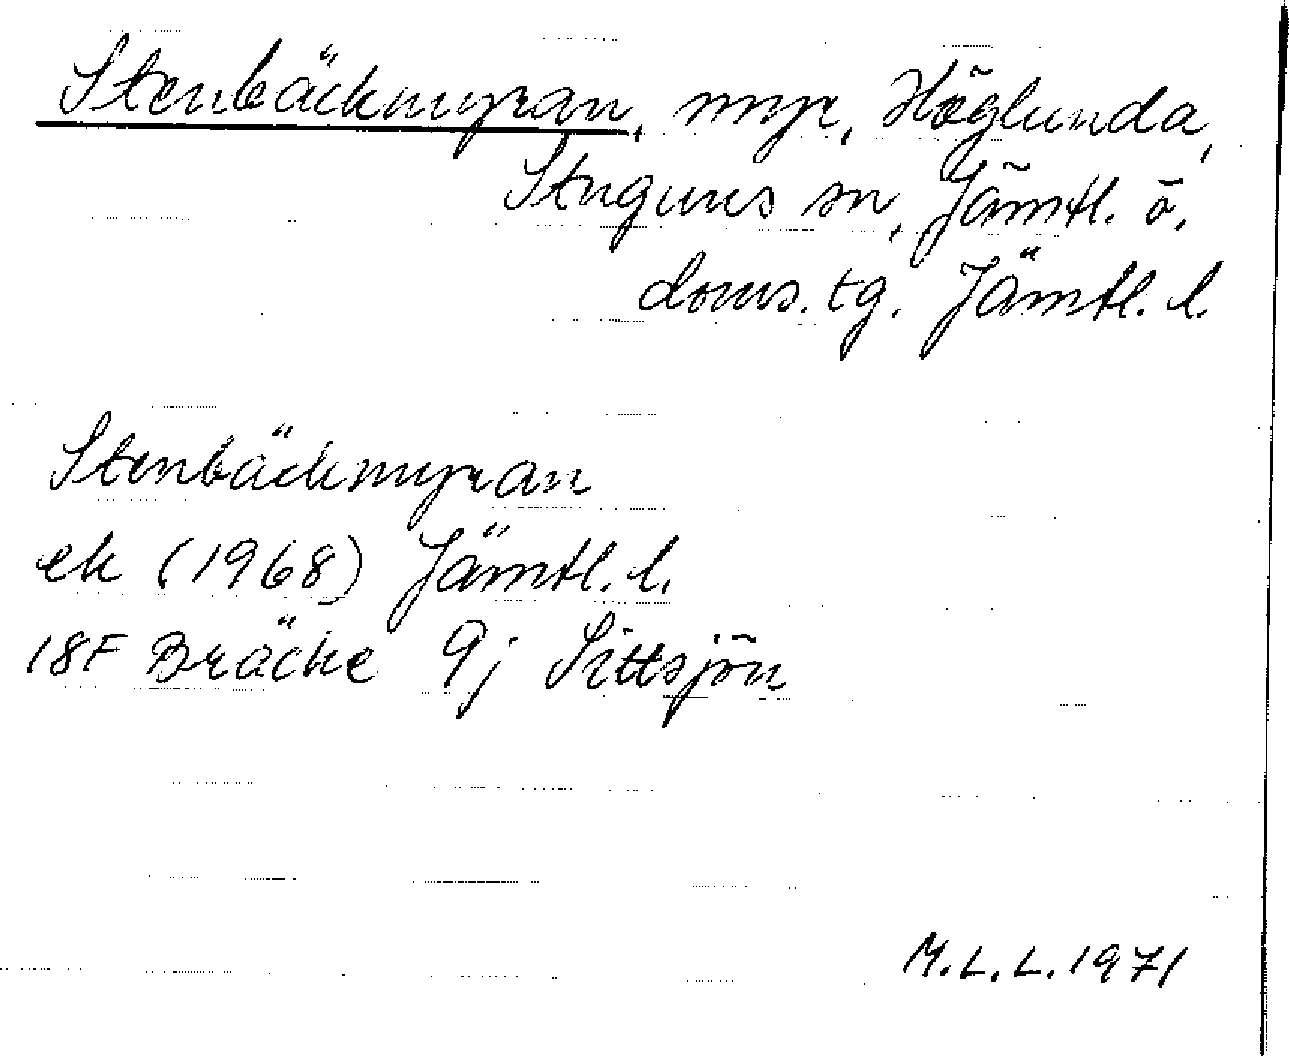 Stenbäckmyran, myr, Höglunda,
Stuguns sn, Jämtl. ö.
doms. tg. Jämtl. l.
Stenbäckmyran
ek (1968) Jämtl. l.
18F Bräcke 9j Sittsjön
M.L.L. 1971